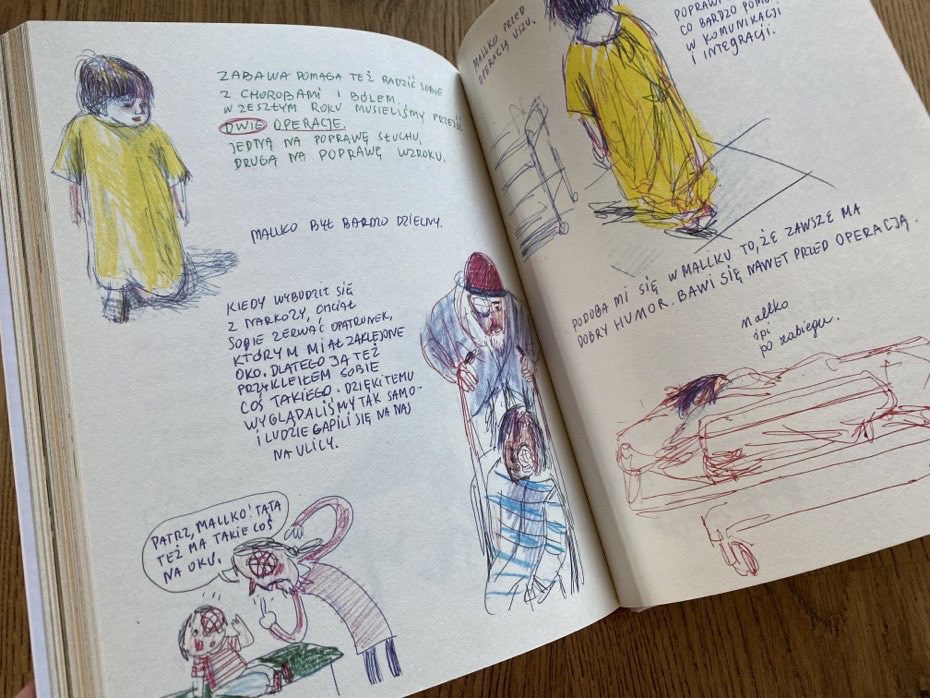 ZABAWA POMAGA TEŻ RADZIĆ SOBIE
Z CHOROBAMI I BÓLEM.
W ZESZŁYM ROKU MUSIELIŚMY PRZEJŚĆ
DWIE OPERACJE.
JEDNĄ NA POPRAWĘ SŁUCHU,
DRUGĄ NA POPRAWĘ WZROKU.
MALLKO BYŁ BARDZO DZIELNY.
KIEDY WYBUDZIŁ SIĘ
Z NARKOZY, CHCIAŁ
SOBIE ZERWAĆ OPATRUNEK,
KTÓRYM MIAŁ ZAKLEJONE
OKO. DLATEGO JA TEŻ
PRZYKLEIŁEM SOBIE
COŚ TAKIEGO. DZIĘKI TEMU
WYGLĄDALIŚMY TAK SAMO
I LUDZIE GAPILI SIĘ NA NAS
NA ULICY.
PATRZ, MALLKO! TATA
TEŻ MA TAKIE COŚ
NA OKU.
MALLKO PRZED
OPERACJĄ USZU.
CO BARDZO
W KOMUNIKACJI
I INTEGRACJI.
PODOBA MI SIĘ W MALLKU TO, ŻE ZAWSZE MA
DOBRY HUMOR. BAWI SIĘ NAWET PRZED OPERACJĄ.
Mallko
śpi
po zabiegu.